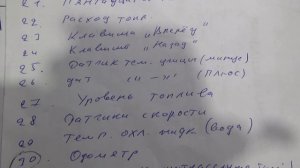 22. Расход топл.
23 Клавиша „Вперёд"
24 Клавиша „Назад"
25. Датчик тем. (минус)
26 дат " — " (Плюс)
27 Уровень топлива
28 Датчики скорости
29 Темп. охл. жидк (вода)
(30) Одометр